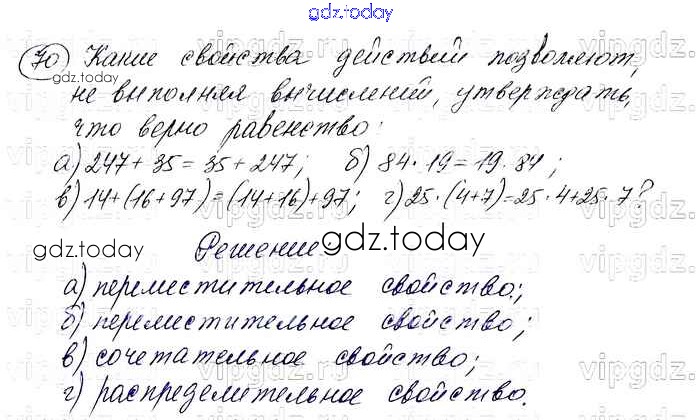 gdz.today
70 Какие свойства действий позволяют,
gdz.today
не выполняя вычислений, утверждать,
что верно равенство:
а) 247 + 35 = 35 + 247; б) 84 · 19 = 19 · 84;
в) 14 + (16 + 97) = (14 + 16) + 97; г) 25 · (4 + 7) = 25 · 4 + 25 · 7?
Решение:
gdz.today gdz.today
а) переместительное свойство;
б) переместительное свойство;
в) сочетательное свойство;
г) распределительное свойство.